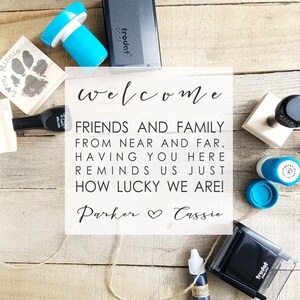 trodat
welcome
FRIENDS AND FAMILY
FROM NEAR AND FAR,
HAVING YOU HERE
REMINDS US JUST
HOW LUCKY WE ARE!
Parker ♡ Cassie
trodat